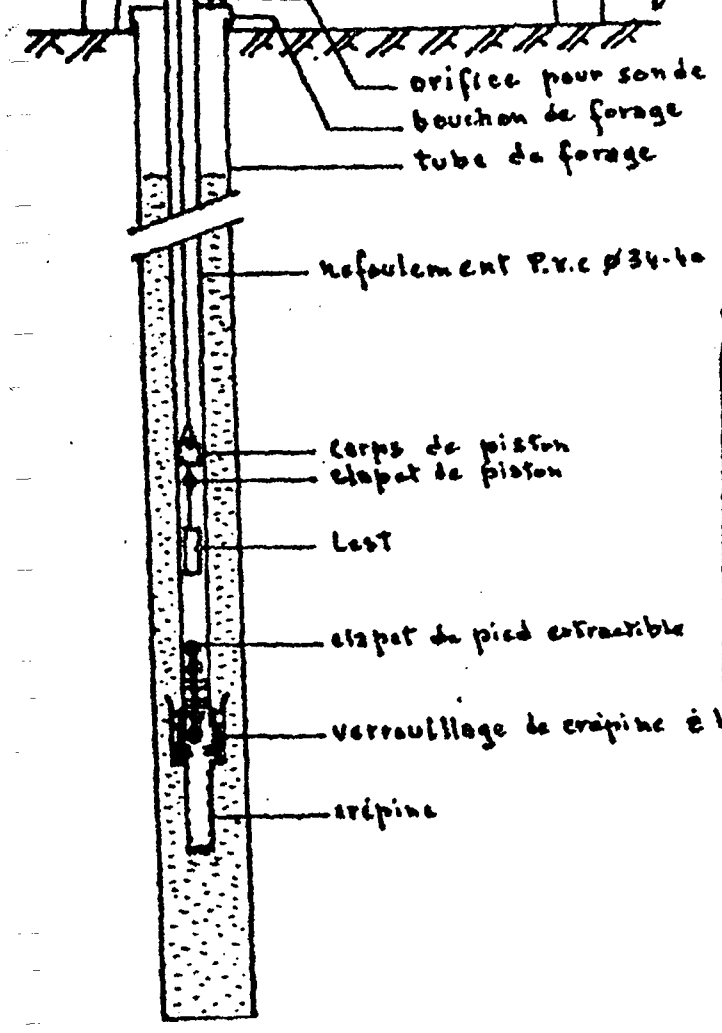 orifice pour sonde
bouchon de forage
tube de forage
refoulement P.v.c ø 34-40
corps de piston
clapet de piston
Lest
clapet du pied extractible
verrouillage de crépine
crépine